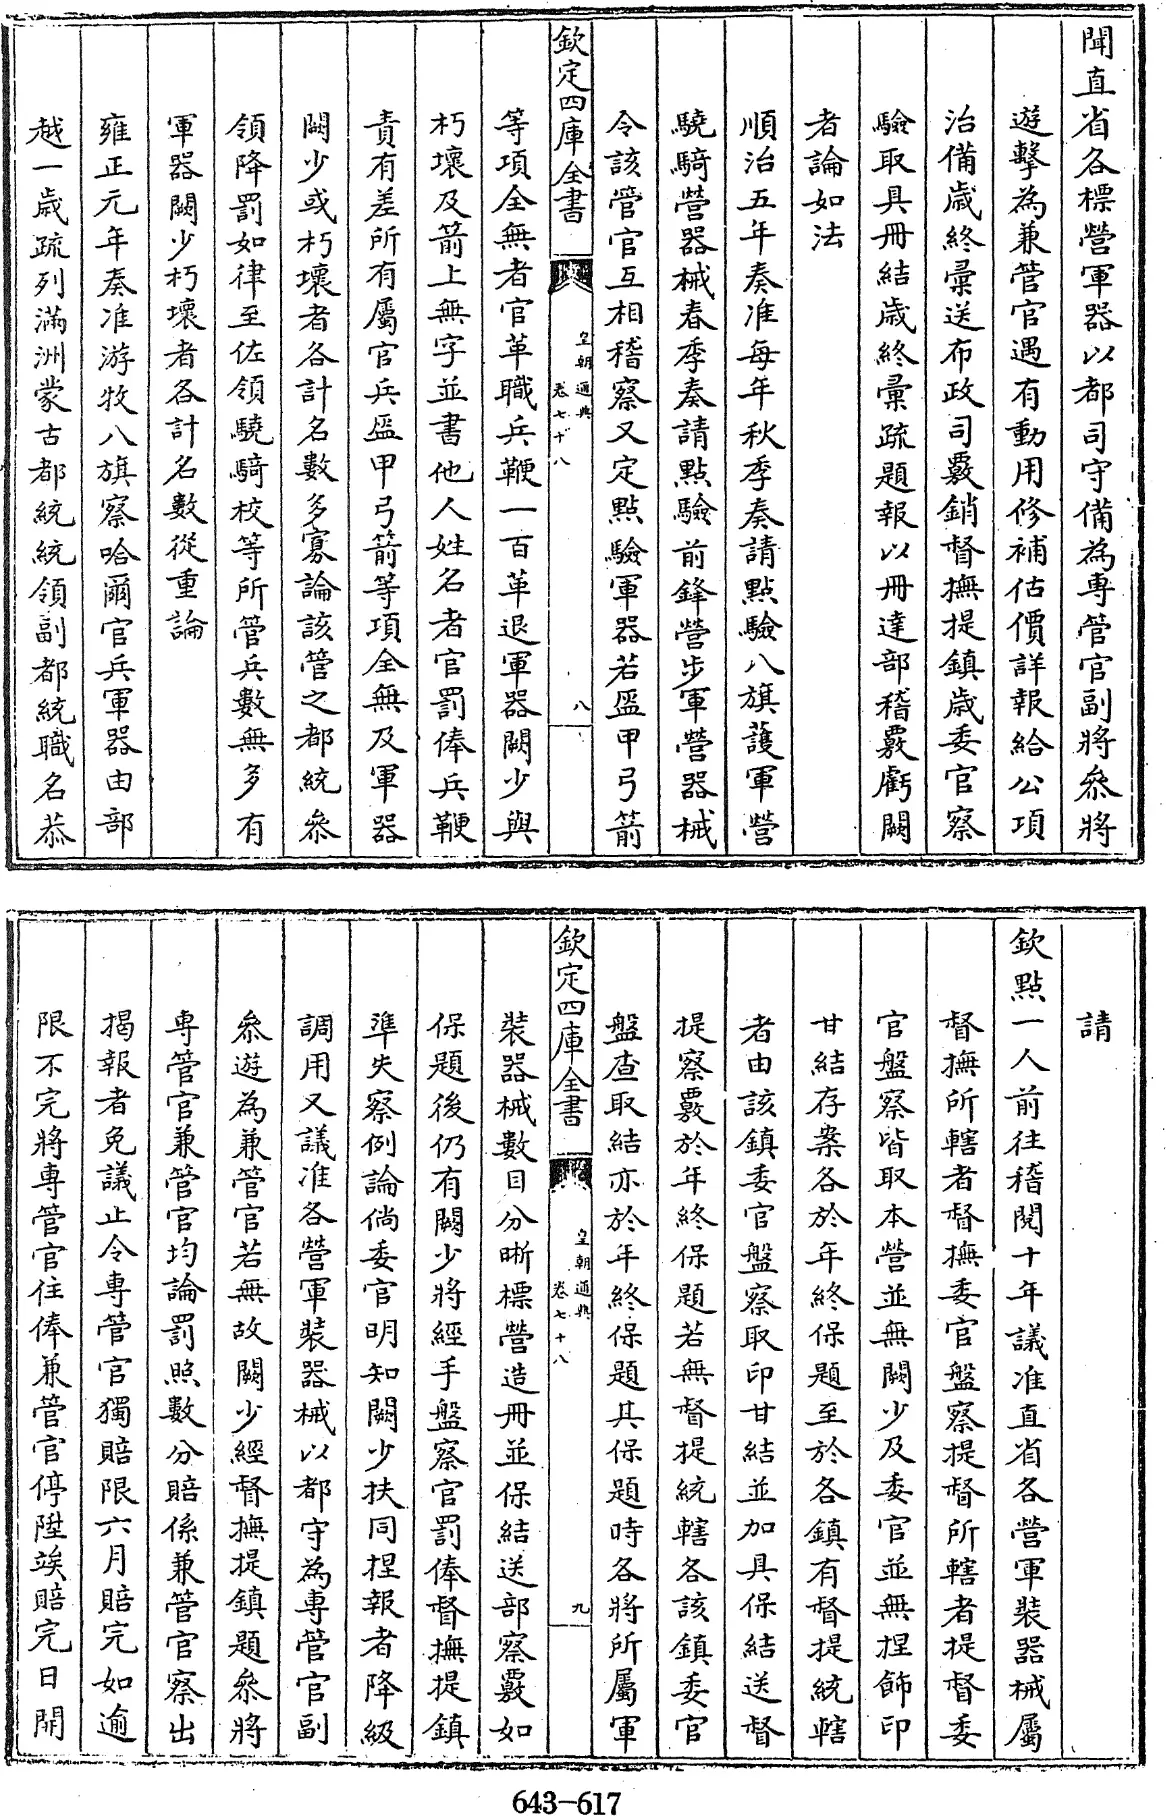 聞直省各標營軍器以都司守備為專管官副將叅將
遊擊為兼管官遇有動用修補估價詳報給公項
治備歳終彙送布政司覈銷督撫提鎮歳委官察
驗取具冊結歳終彙疏題報以冊達部稽覈虧闕
者論如法
順治五年奏准每年秋季奏請點驗八旗護軍營
驍騎營器械春季奏請點驗前鋒營步軍營器械
令該管官互相稽察又定點驗軍器若盔甲弓箭
欽定四庫全書
皇朝通典
卷七十八
八
等項全無者官革職兵鞭一百革退軍器闕少與
朽壞及箭上無字並書他人姓名者官罰俸兵鞭
責有差所有屬官兵盔甲弓箭等項全無及軍器
闕少或朽壞者各計名數多寡論該管之都統叅
領降罰如律至佐領驍騎校等所管兵數無多有
軍器闕少朽壞者各計名數從重論
雍正元年奏准游牧八旗察哈爾官兵軍器由部
越一歳疏列滿洲蒙古都統統領副都統職名恭
請
欽點一人前往稽閱十年議准直省各營軍裝器械屬
督撫所轄者督撫委官盤察提督所轄者提督委
官盤察皆取本營並無闕少及委官並無捏飾印
甘結存案各於年終保題至於各鎮有督提統轄
者由該鎮委官盤察取印甘結並加具保結送督
提察覈於年終保題若無督提統轄各該鎮委官
盤查取結亦於年終保題其保題時各將所屬軍
欽定四庫全書
皇朝通典
卷七十八
九
裝器械數目分晰標營造冊並保結送部察覈如
保題後仍有闕少將經手盤察官罰俸督撫提鎮
準失察例論倘委官明知闕少扶同捏報者降級
調用又議准各營軍裝器械以都守為專管官副
叅遊為兼管官若無故闕少經督撫提鎮題叅將
專管官兼管官均論罰照數分賠係兼管官察出
揭報者免議止令專管官獨賠限六月賠完如逾
限不完將專管官住俸兼管官停陞竢賠完日開
643-617